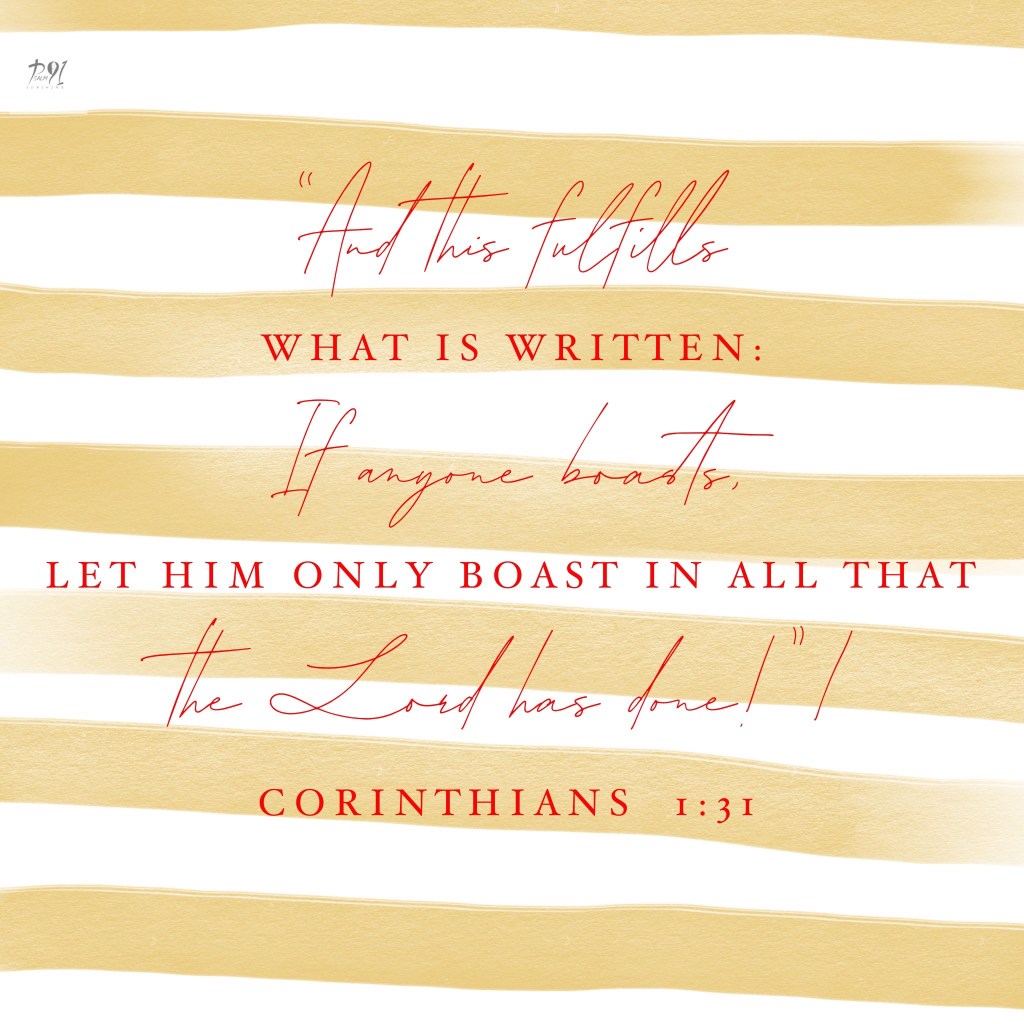 PSALM 91
“And this fulfills
WHAT IS WRITTEN:
If anyone boasts,
LET HIM ONLY BOAST IN ALL THAT
the Lord has done!” 1
CORINTHIANS 1:31